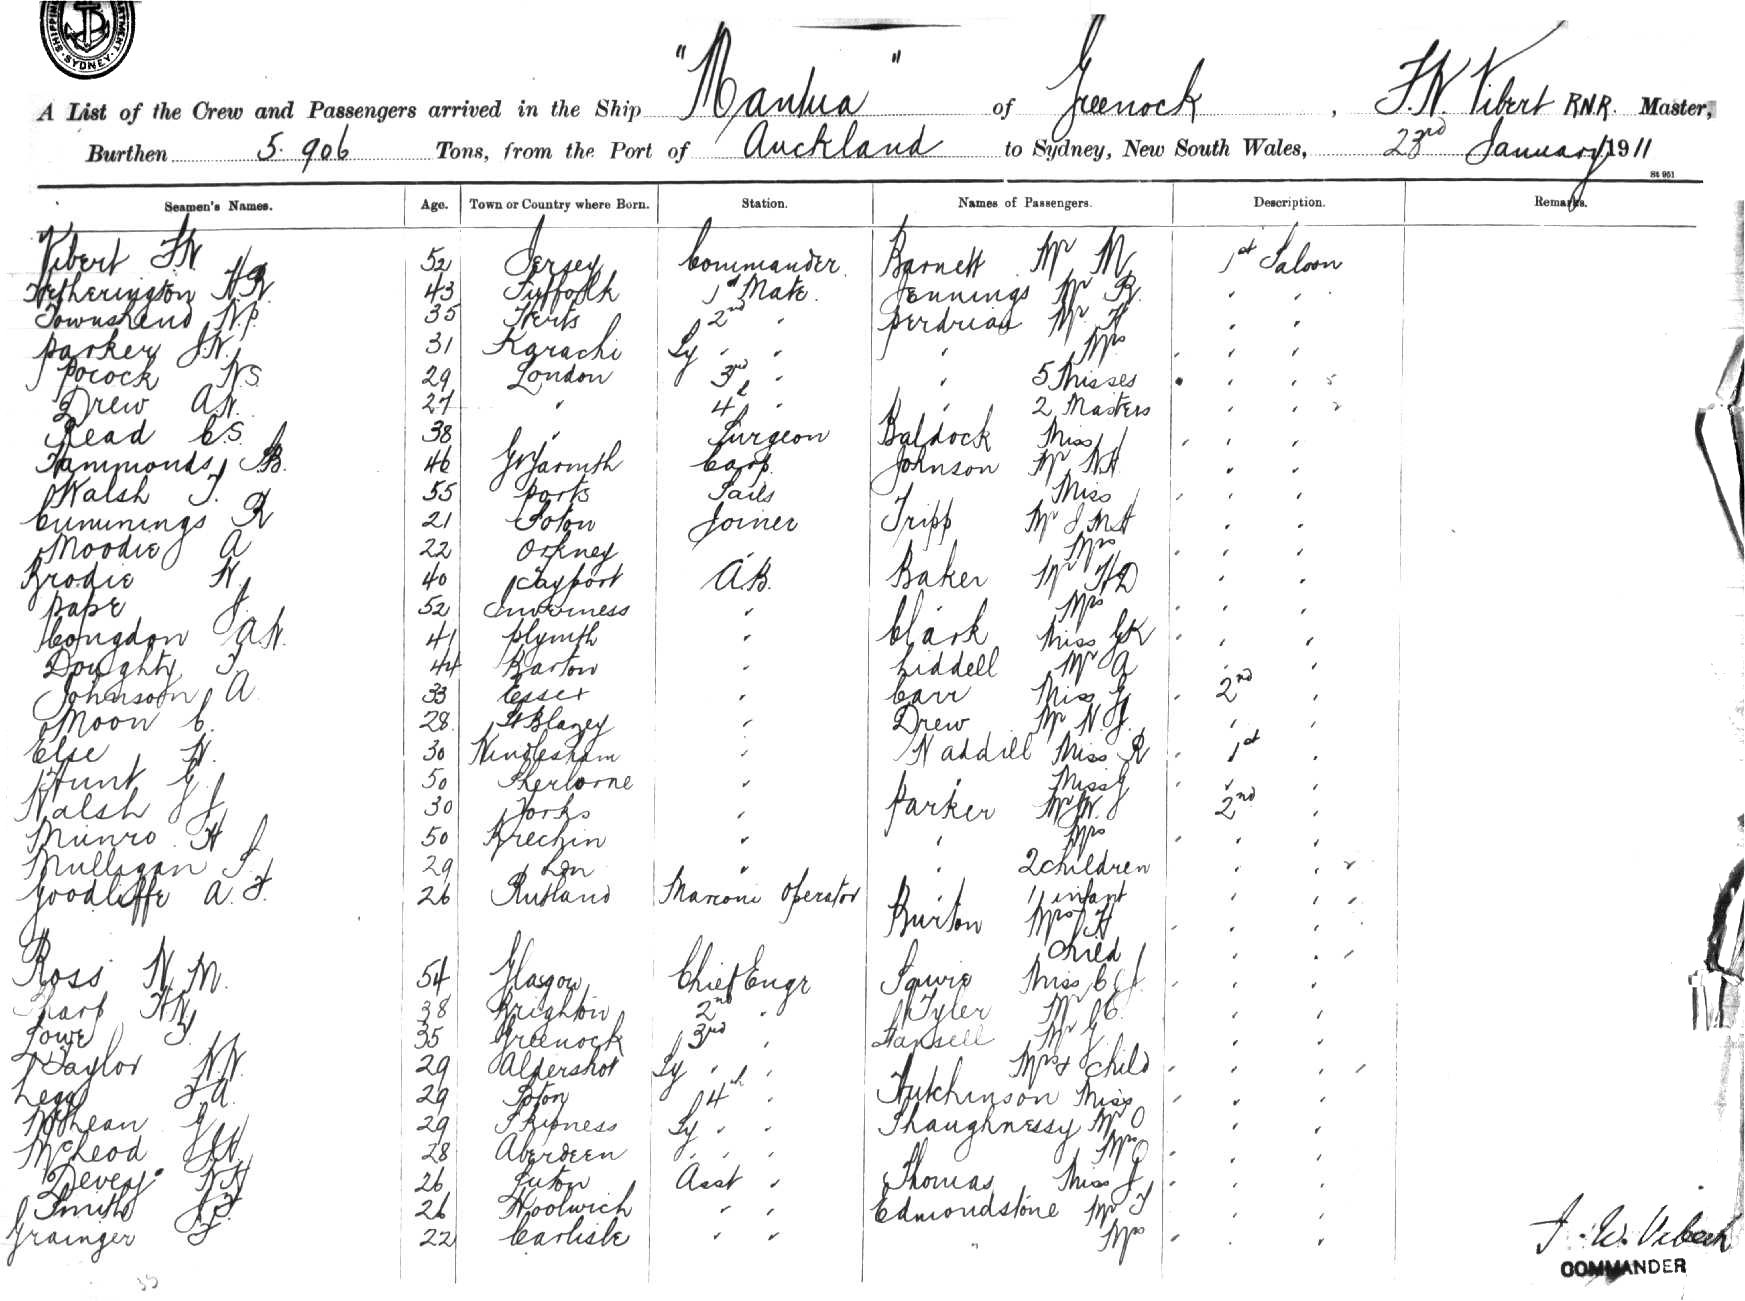 SHIPPING DEPARTMENT SYDNEY
A List of the Crew and Passengers arrived in the Ship "Mantua" of Greenock, F. W. Vibert R.N.R. Master,
Burthen 5.906 Tons, from the Port of Auckland to Sydney, New South Wales, 23rd January 1911
St 951
Seamen's Names. Age. Town or Country where Born. Station. Names of Passengers. Description. Remarks.
Vibert F W 52 Jersey Commander. Barnett Mr M 1st Saloon
Hetherington H R 43 Suffolk 1st Mate. Jennings Mr R " "
Townshend N.P. 35 Herts 2nd " Perdriau Mr H " "
Parker J.W. 31 Karachi Sy " " " Mrs " " "
Pocock W S 29 London 3rd " " 5 Misses " " " 5
Drew A W. 27 " 4th " " 2 Masters " " 2
Read C S. 38 " Surgeon Baldock Miss " " "
Hammonds J B. 46 Gt Yarmth Carp. Johnson Mr W H " "
Walsh T. 55 Ports Sails " Miss " " "
Cummings R 21 Soton Joiner Tripp Mr J M H " "
Moodie A 22 Orkney " Mrs " " "
Brodie W. 40 Tayport A.B. Baker Mr H D " "
Pape J. 52 Inverness " " Mrs " " "
Congdon A W. 41 Plymth " Clark Miss G K " " "
Doughty T 44 Barton " Liddell Mr A " "
Johnson A 33 Essex " Carr Miss G " 2nd "
Moon C. 28 St Blazey " Drew Mr W J. " "
Else W. 30 Windlesham " Waddill Miss R " 1st "
Hunt G 50 Sherborne " " Miss J " "
Walsh J J 30 Yorks " Parker Mr W. J 2nd "
Munro H 50 Brechin " " Mrs " " "
Mulligan J. 29 Lon " " 2 children " " 2
Goodliffe A. F. 26 Rutland Marconi Operator " 1 infant " " "
Burton Mrs H " " "
child " " "
Ross W. M. 54 Glasgow Chief Engr Squire Miss C J. " " "
Sharp H W 38 Brighton 2nd " Tyler Mr C. " "
Lowe T. 35 Greenock 3rd " Hansell Mr G. " "
Taylor W. W. 29 Aldershot Sy " " Mrs & Child " " " "
Legg F A. 29 Soton 4th " Hutchinson Miss " " "
McLean G 29 Skipness Sy " " Shaughnessy Mr O " "
McLeod J H. 28 Aberdeen " " " Mrs O " " "
Devey W H 26 Luton Asst " Thomas Miss J " " "
Smith J F. 26 Woolwich " " Edmondstone Mr T " "
Grainger F 22 Carlisle " " " Mrs " " "
F. W. Vibert
COMMANDER
35